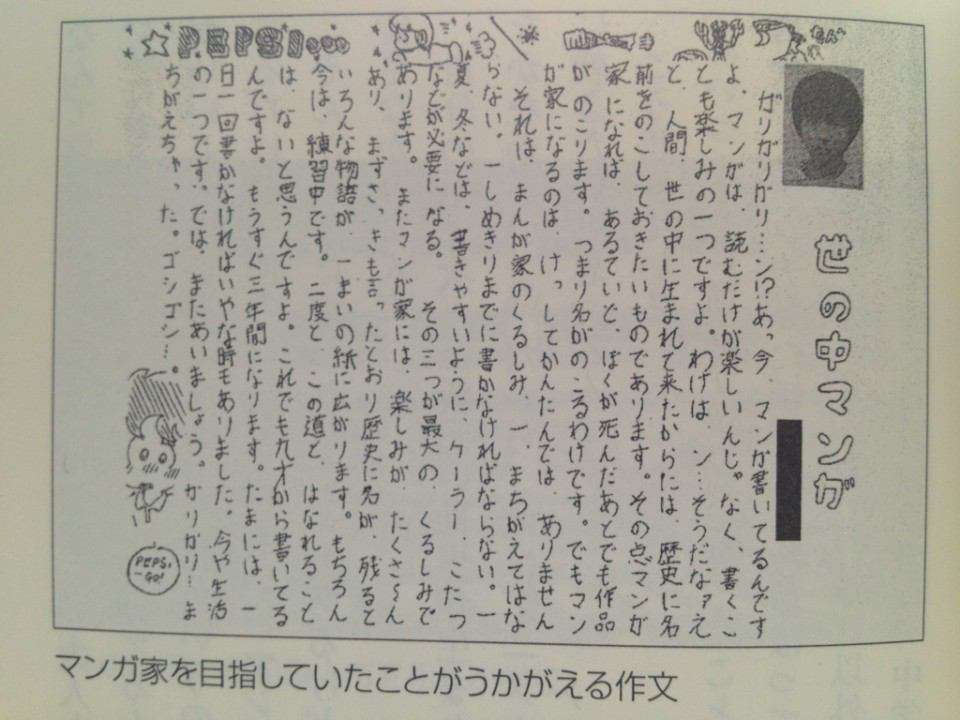 PEPSI
世の中マンガ
ガリガリガリ…ン!?あっ今、マンガ書いてるんです
よ。マンガは、読むだけが楽しいんじゃなく、書くこ
とも楽しみの一つですよ。わけは、ン…そうだなァえ
と、人間、世の中に生まれて来たからには、歴史に名
前をのこしておきたいものであります。その点マンガ
家になれば、あるていど、ぼくが死んだあとでも作品
が、のこります。つまり名がのこるわけです。でもマン
が家になるのは、けっしてかんたんでは、ありません
それは、まんが家のくるしみ、一、まちがえてはな
らない。一しめきりまでに書かなければならない。一
夏、冬などは、書きやすいように、クーラー、こたつ
などが必要になる。その三つが最大の、くるしみで
あります。またマンが家には、楽しみが、たくさ〜ん
あり、まずさっきも言ったとおり歴史に名が、残ると
いろんな物語が、一まいの紙に広がります。もちろん
今は、練習中です。二度と、この道と、はなれること
は、ないと思うんですよ。これでも九才から書いてる
んですよ。もうすぐ三年間になります。たまには、一
日一回書かなければいやな時もありました。今や生活
の一つです。では、またあいましょう。ガリガリ…ま
ちがえちゃった。ゴシゴシ…。
PEPSI
-GO!
マンガ家を目指していたことがうかがえる作文